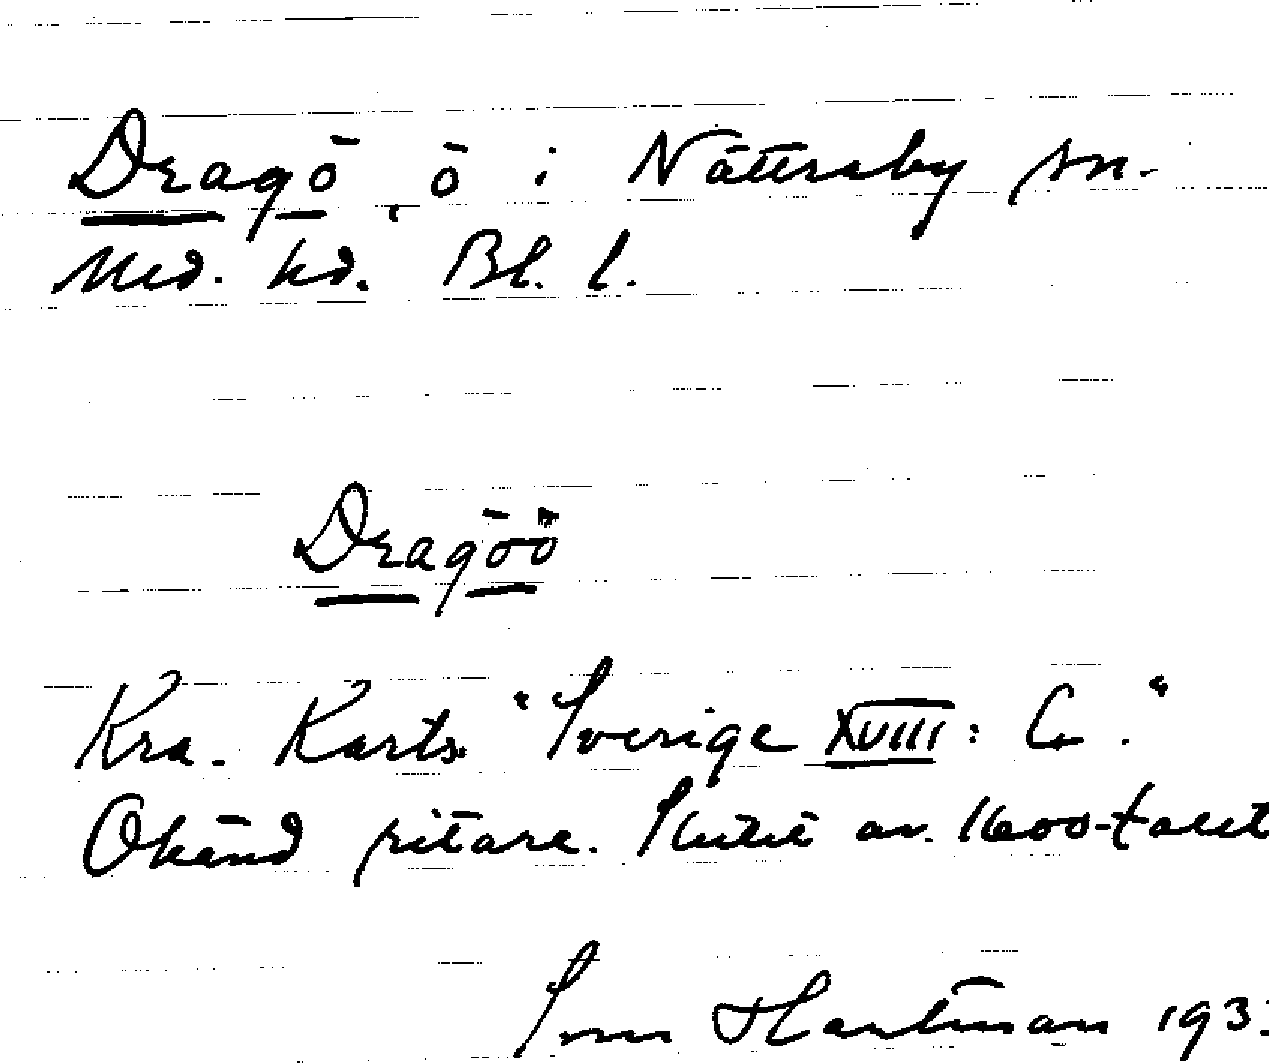 Dragö, ö i Nättraby sn.
Med. hd. Bl. l.
Dragöö
Kra. Karts. "Sverige XVIII: C."
Okänd ritare. Slutet av 1600-talet
Sven Hartman 193